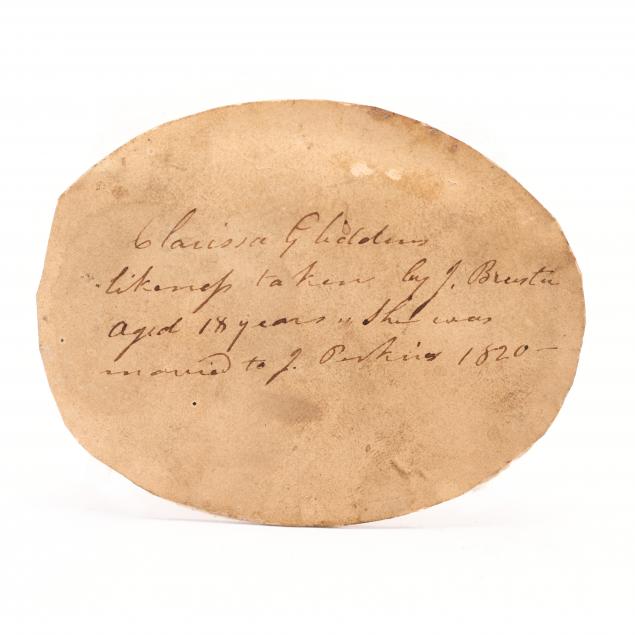 Clarissa Gliddens
likeness taken by J. Brewster
aged 18 years " She was
married to J. Perkins 1820 –